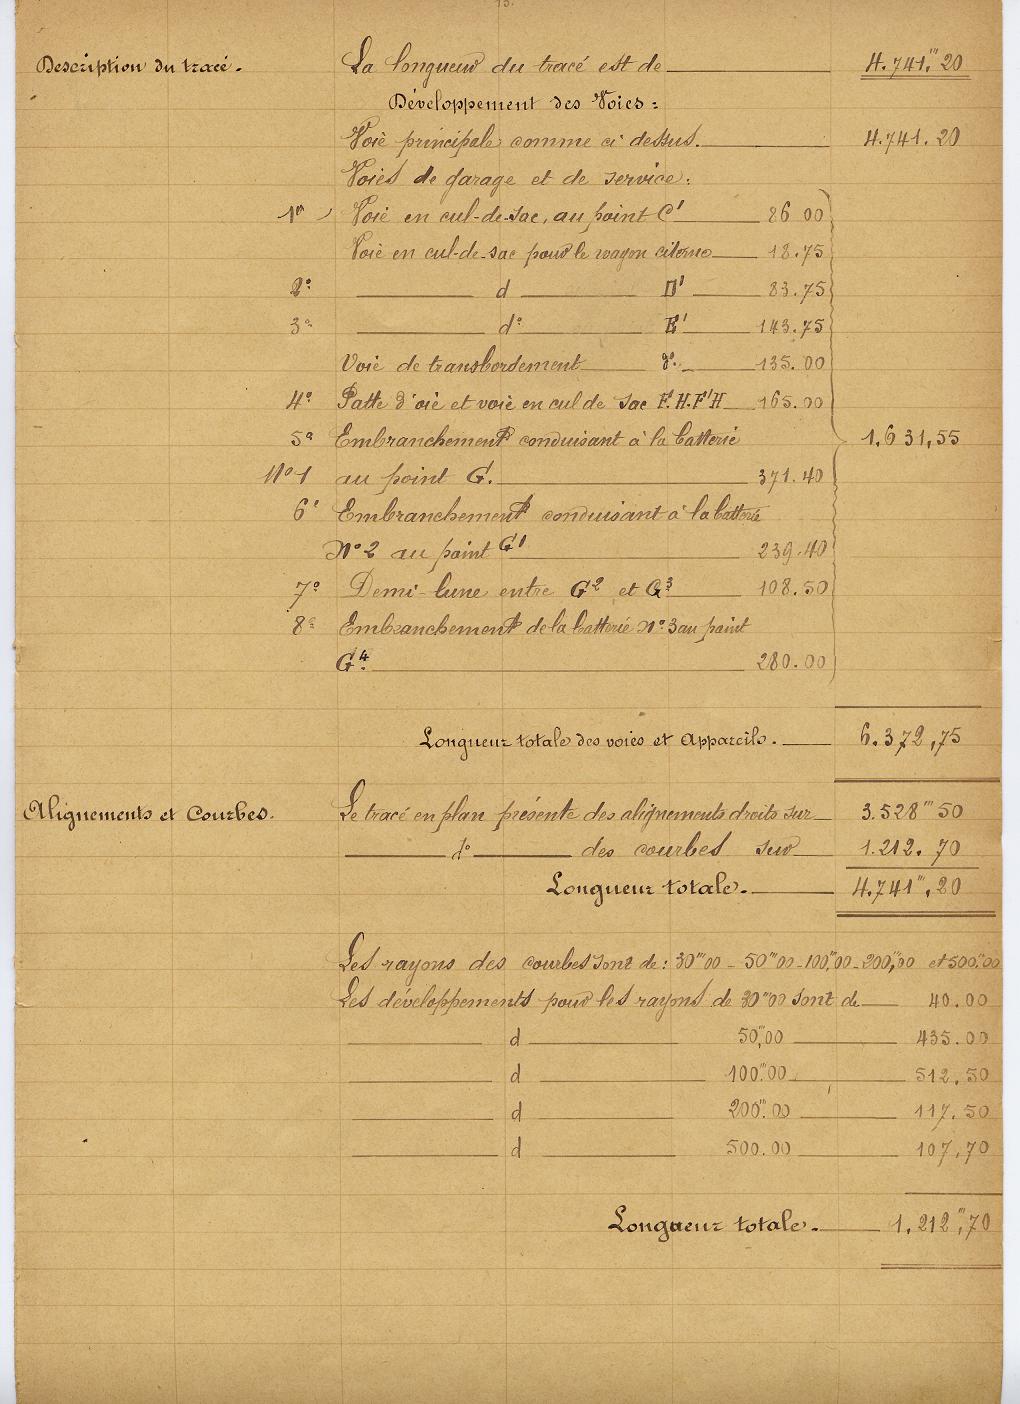 13.
Description du tracé. La longueur du tracé est de 4.741,ᵐ20
Développement des Voies:
Voie principale comme ci dessus. 4.741.20
Voies de garage et de service:
1º Voie en cul-de-sac, au point C' 86 00
Voie en cul-de-sac pour le wagon citerne 18.75
2º d D' 83.75
3º dº E' 143.75
Voie de transbordement dº 135.00
4º Patte d'oie et voie en cul de sac F.H.F'H 165.00
5º Embranchement conduisant à la batterie 1.631,55
Nº1 au point G. 371.40
6º Embranchement conduisant à la batterie
Nº2 au point G¹ 239.40
7º Demi-lune entre G² et G³ 108.50
8º Embranchement de la batterie Nº3 au point
G⁴. 280.00
Longueur totale des voies et Appareils. 6.372,75
Alignements et Courbes. Le tracé en plan présente des alignements droits sur 3.528ᵐ50
dº des courbes sur 1.212.70
Longueur totale. 4.741ᵐ,20
Les rayons des courbes sont de: 30ᵐ00 - 50ᵐ00 - 100,ᵐ00 - 200,ᵐ00 et 500,ᵐ00
Les développements pour les rayons de 30ᵐ00 sont de 40.00
d 50,ᵐ00 435.00
d 100,ᵐ00 512.50
d 200,ᵐ00 117.50
d 500.00 107,70
Longueur totale. 1.212,ᵐ70